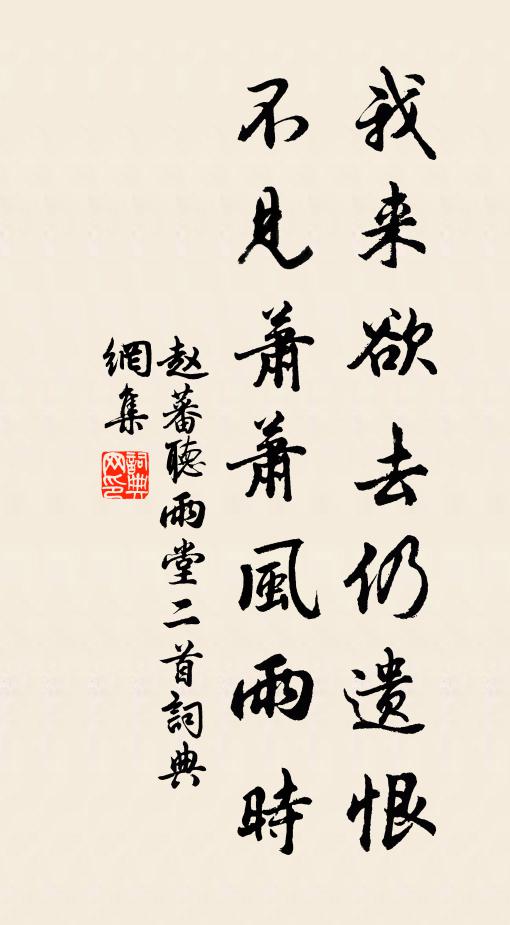 我来欲去仍遗恨
不見蕭蕭風雨時
赵蕃聽雨堂二首詞典
網集
詞典网印